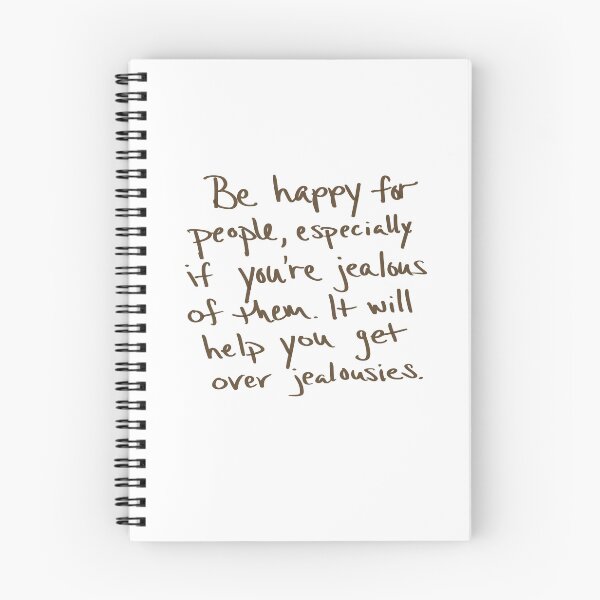 Be happy for
people, especially
if you're jealous
of them. It will
help you get
over jealousies.